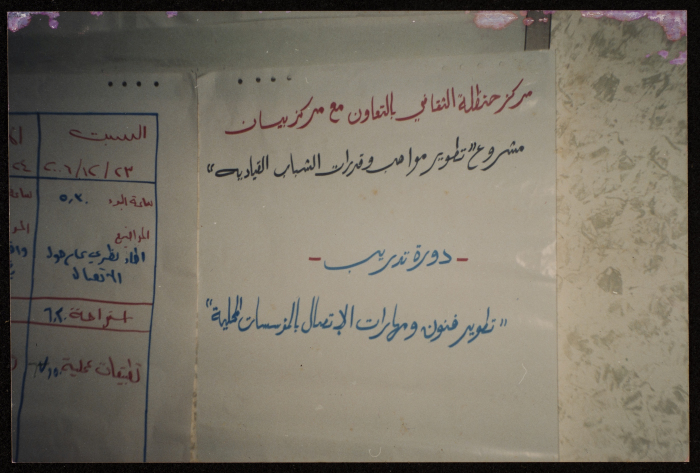 مركز حنظلة الثقافي بالتعاون مع مركز بيسان
مشروع "تطوير مواهب وقدرات الشباب القيادية"
- دورة تدريب -
"تطوير فنون ومهارات الإتصال بالمؤسسات المحلية"
السبت
٢٠٠٦/١٢/٢٣
ساعة البدء ٥,٣٠
المواضيع
اطار نظري عام حول
الاتصال
استراحة ٦,٣٠
تطبيقات عملية
٢٤